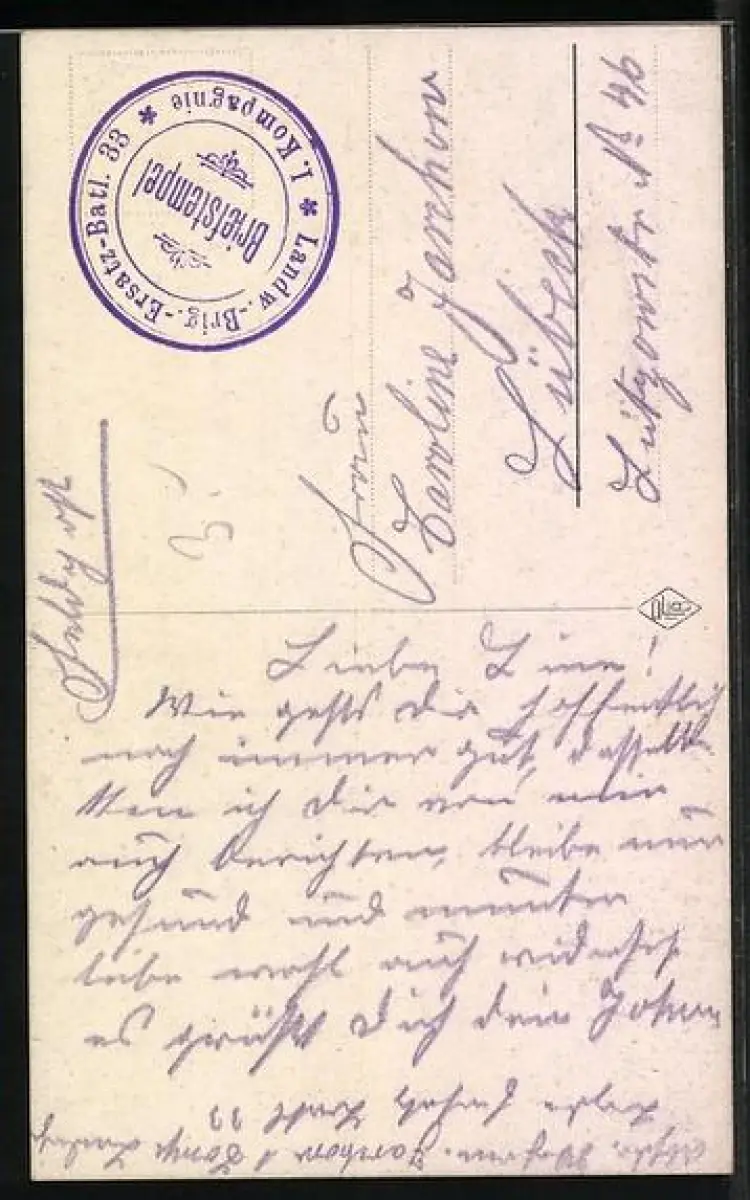 Feldpost
Landw.-Brig.-Ersatz-Batl. 33 * 1. Kompagnie *
Briefstempel
Frau
Caroline Jarchow
Lübeck
Lützowstr No 46
Liebe Line!
Wie gehts Dir hoffentlich
noch immer gut, dasselbe
kan ich Dir von mir
auch berichten, bleibe nur
gesund und munter
lebe wohl auf widersehn
es grüßt Dich dein Johann
Jarchow 1
33